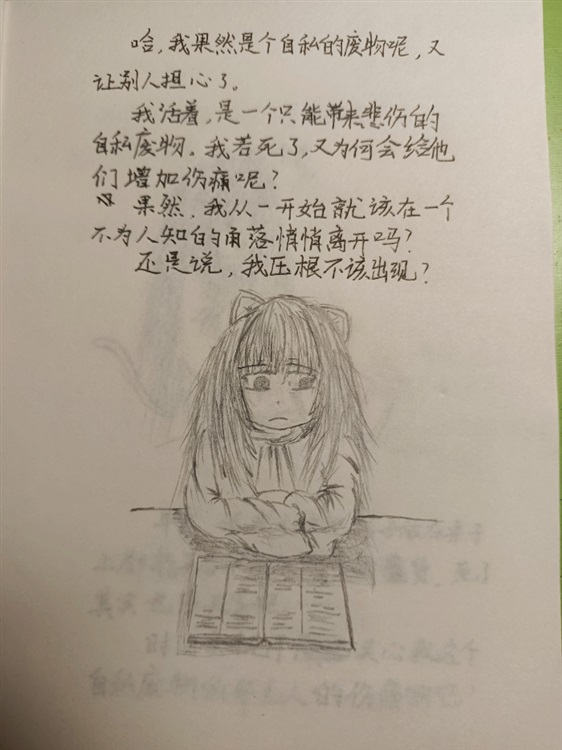 哈,我果然是个自私的废物呢,又
让别人担心了。
我活着,是一个只能带来悲伤的
自私废物。我若死了,又为何会给他
们增加伤痛呢?
果然,我从一开始就该在一个
不为人知的角落悄悄离开吗?
还是说,我压根不该出现?